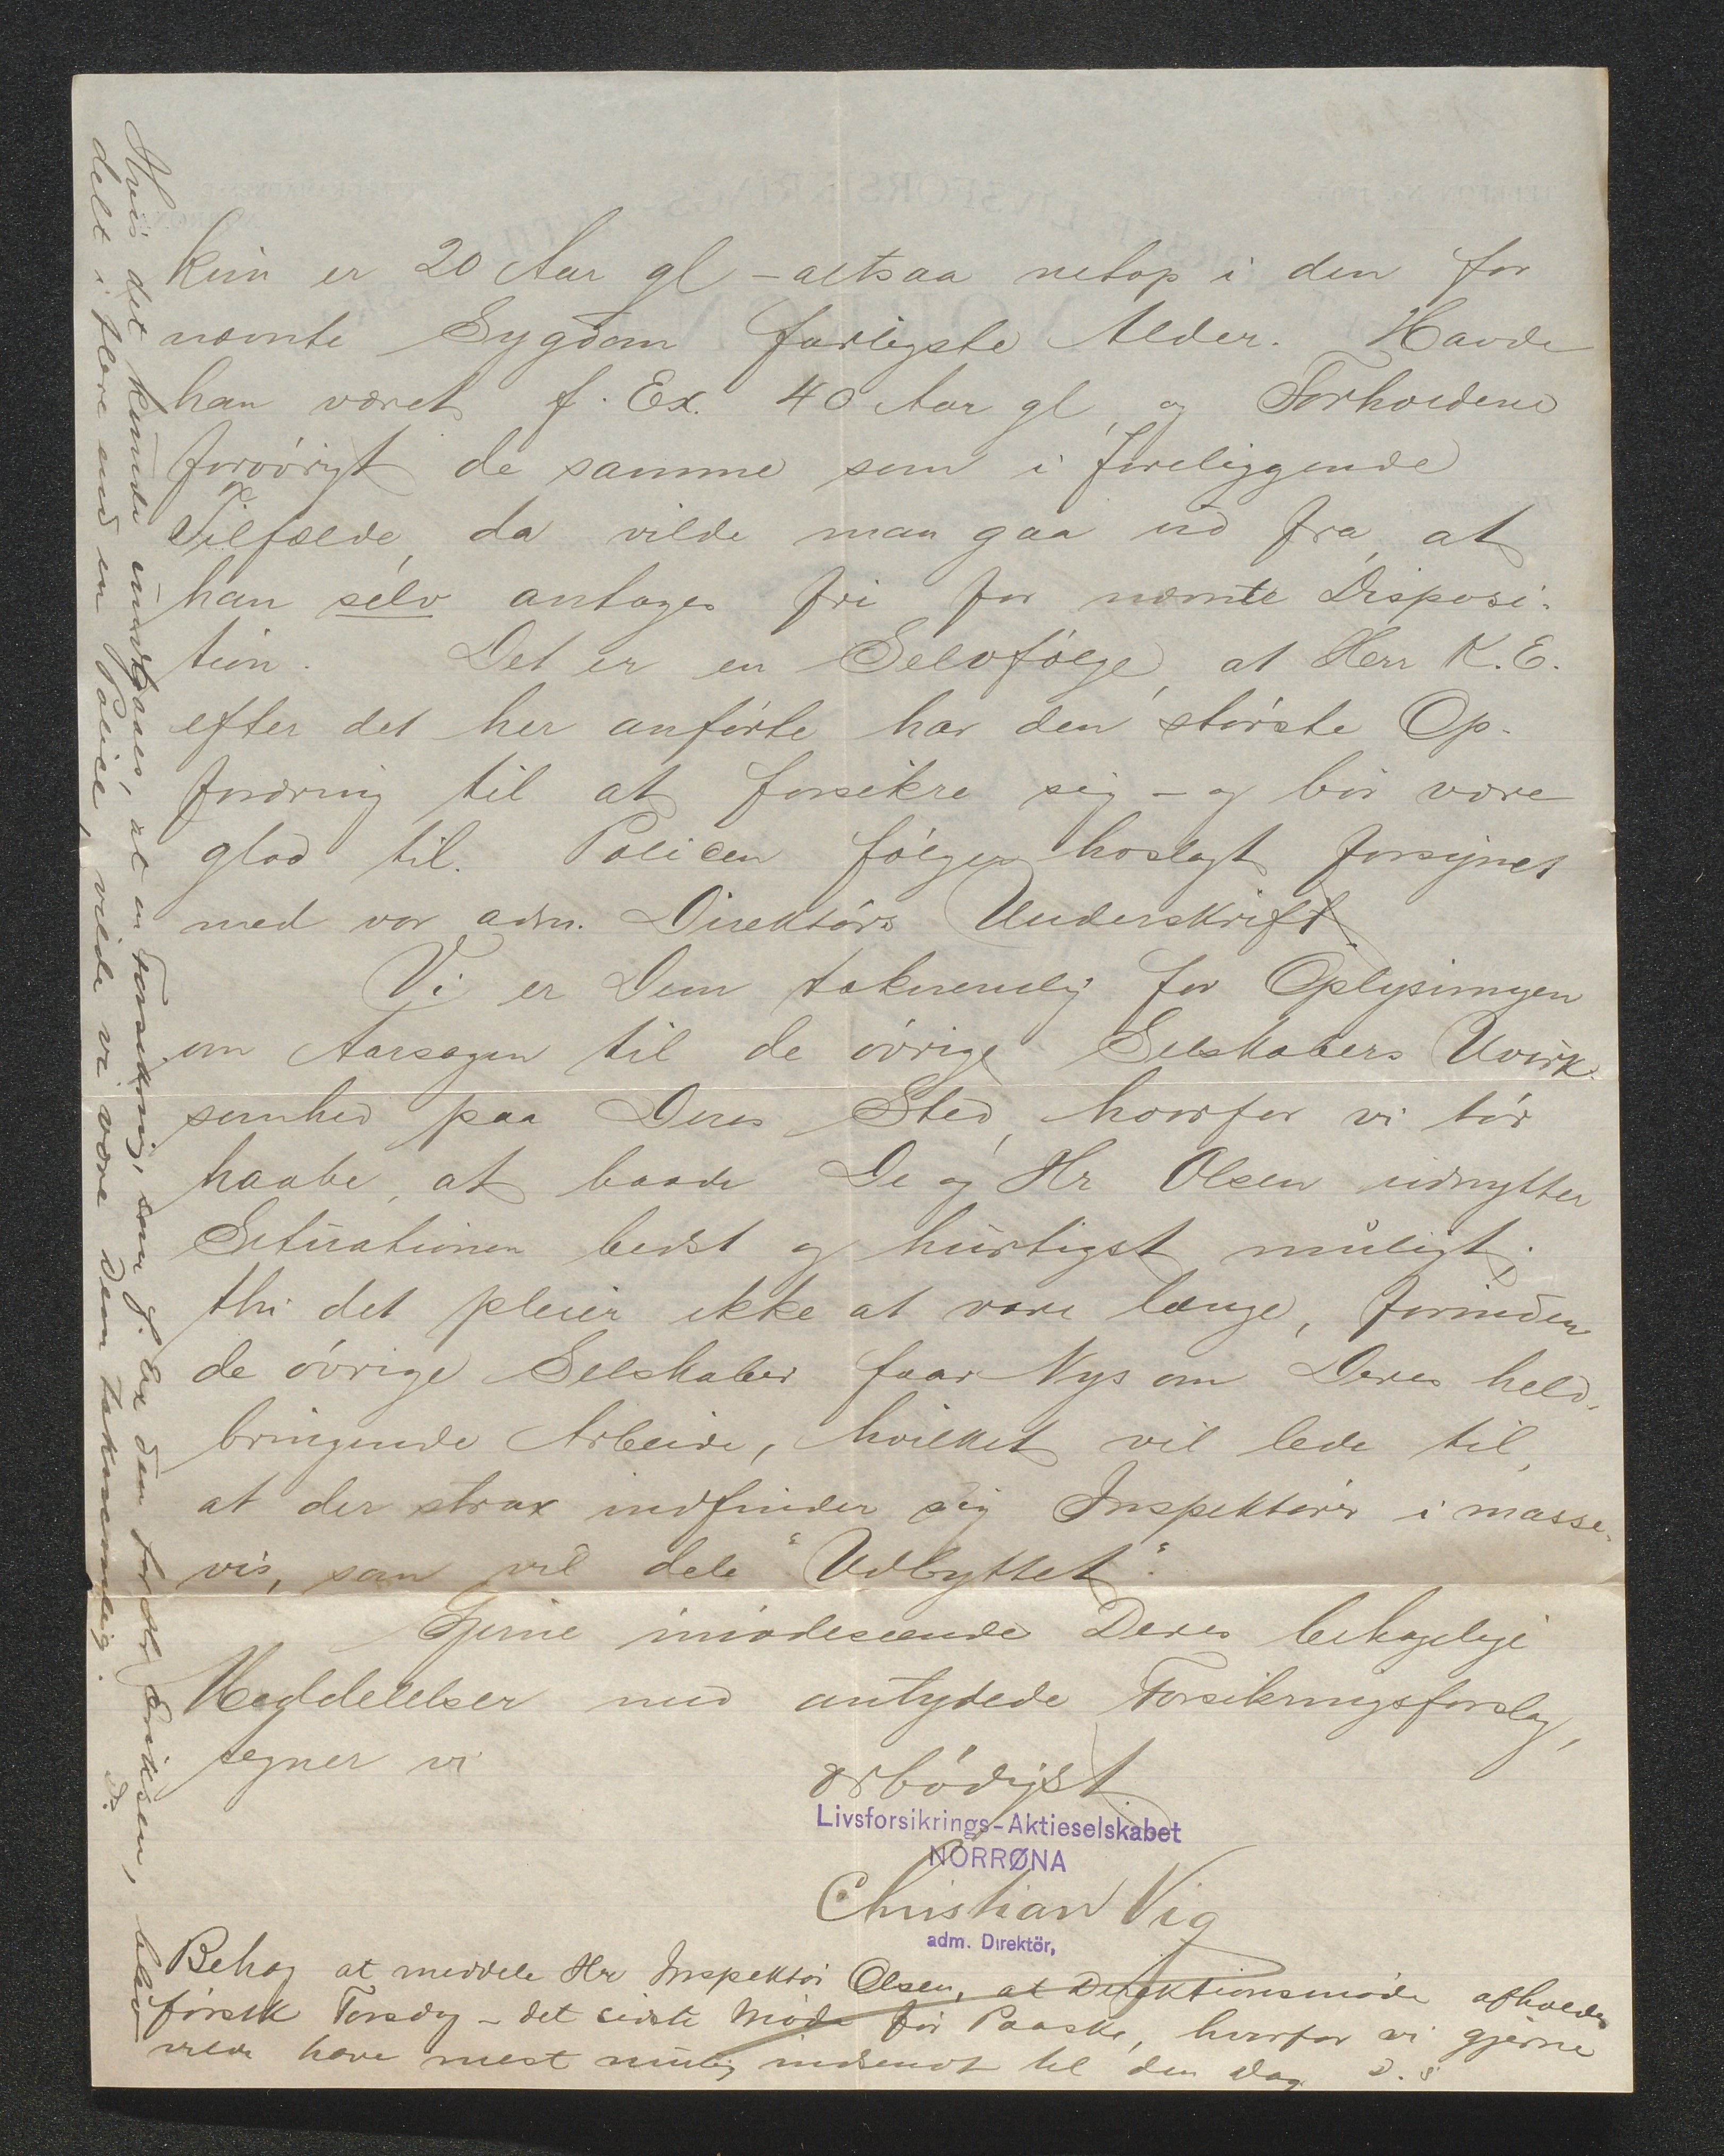 kun er 20 Aar gl – altsaa netop i den for
nævnte Sygdom farligste Alder. Havde
han været f. Ex. 40 Aar gl, og Forholdene
forøvrigt de samme som i foreliggende
Tilfælde, da vilde man gaa ud fra, at
han selv antages fri for nævnte Disposi-
tion. Det er en Selvfølge, at Herr K. E.
efter det her anførte har den største Op-
fordring til at forsikre sig – og bør være
glad til. Policen følger hoslagt forsynet
med vor adm. Direktørs Underskrift.
Vi er Dem taknemlig for Oplysningen
om Aarsagen til de øvrige Selskabers Uvirk-
somhed paa Deres Sted, hvorfor vi tør
haabe, at baade De og Hr Olsen udnytter
Situationen bedst og hurtigst muligt;
thi det pleier ikke at vare længe, forinden
de øvrige Selskaber faar Nys om Deres held-
bringende Arbeide, hvilket vil lede til,
at der strax indfinder sig Inspektører i masse-
vis, som vil dele "Udbyttet".
Gjerne imødeseende Deres behagelige
Meddelelser med antydede Forsikringsforslag,
tegner vi
ærbødigst
Livsforsikrings-Aktieselskabet
NORRØNA
Christian Vig
adm. Direktör,
Behag at meddele Hr Inspektør Olsen, at Direktionsmøde afholdes
førstk Torsdag – det sidste Møde før Paaske, hvorfor vi gjerne
vilde have mest mulig indsendt til den Dag D.S.
Hvis det kunde undgaaes, at en Forsikring, som f. Ex den for Hr Eriksen, blev
delt i flere end en Police, vilde vi være Dem taknemmelig. D.